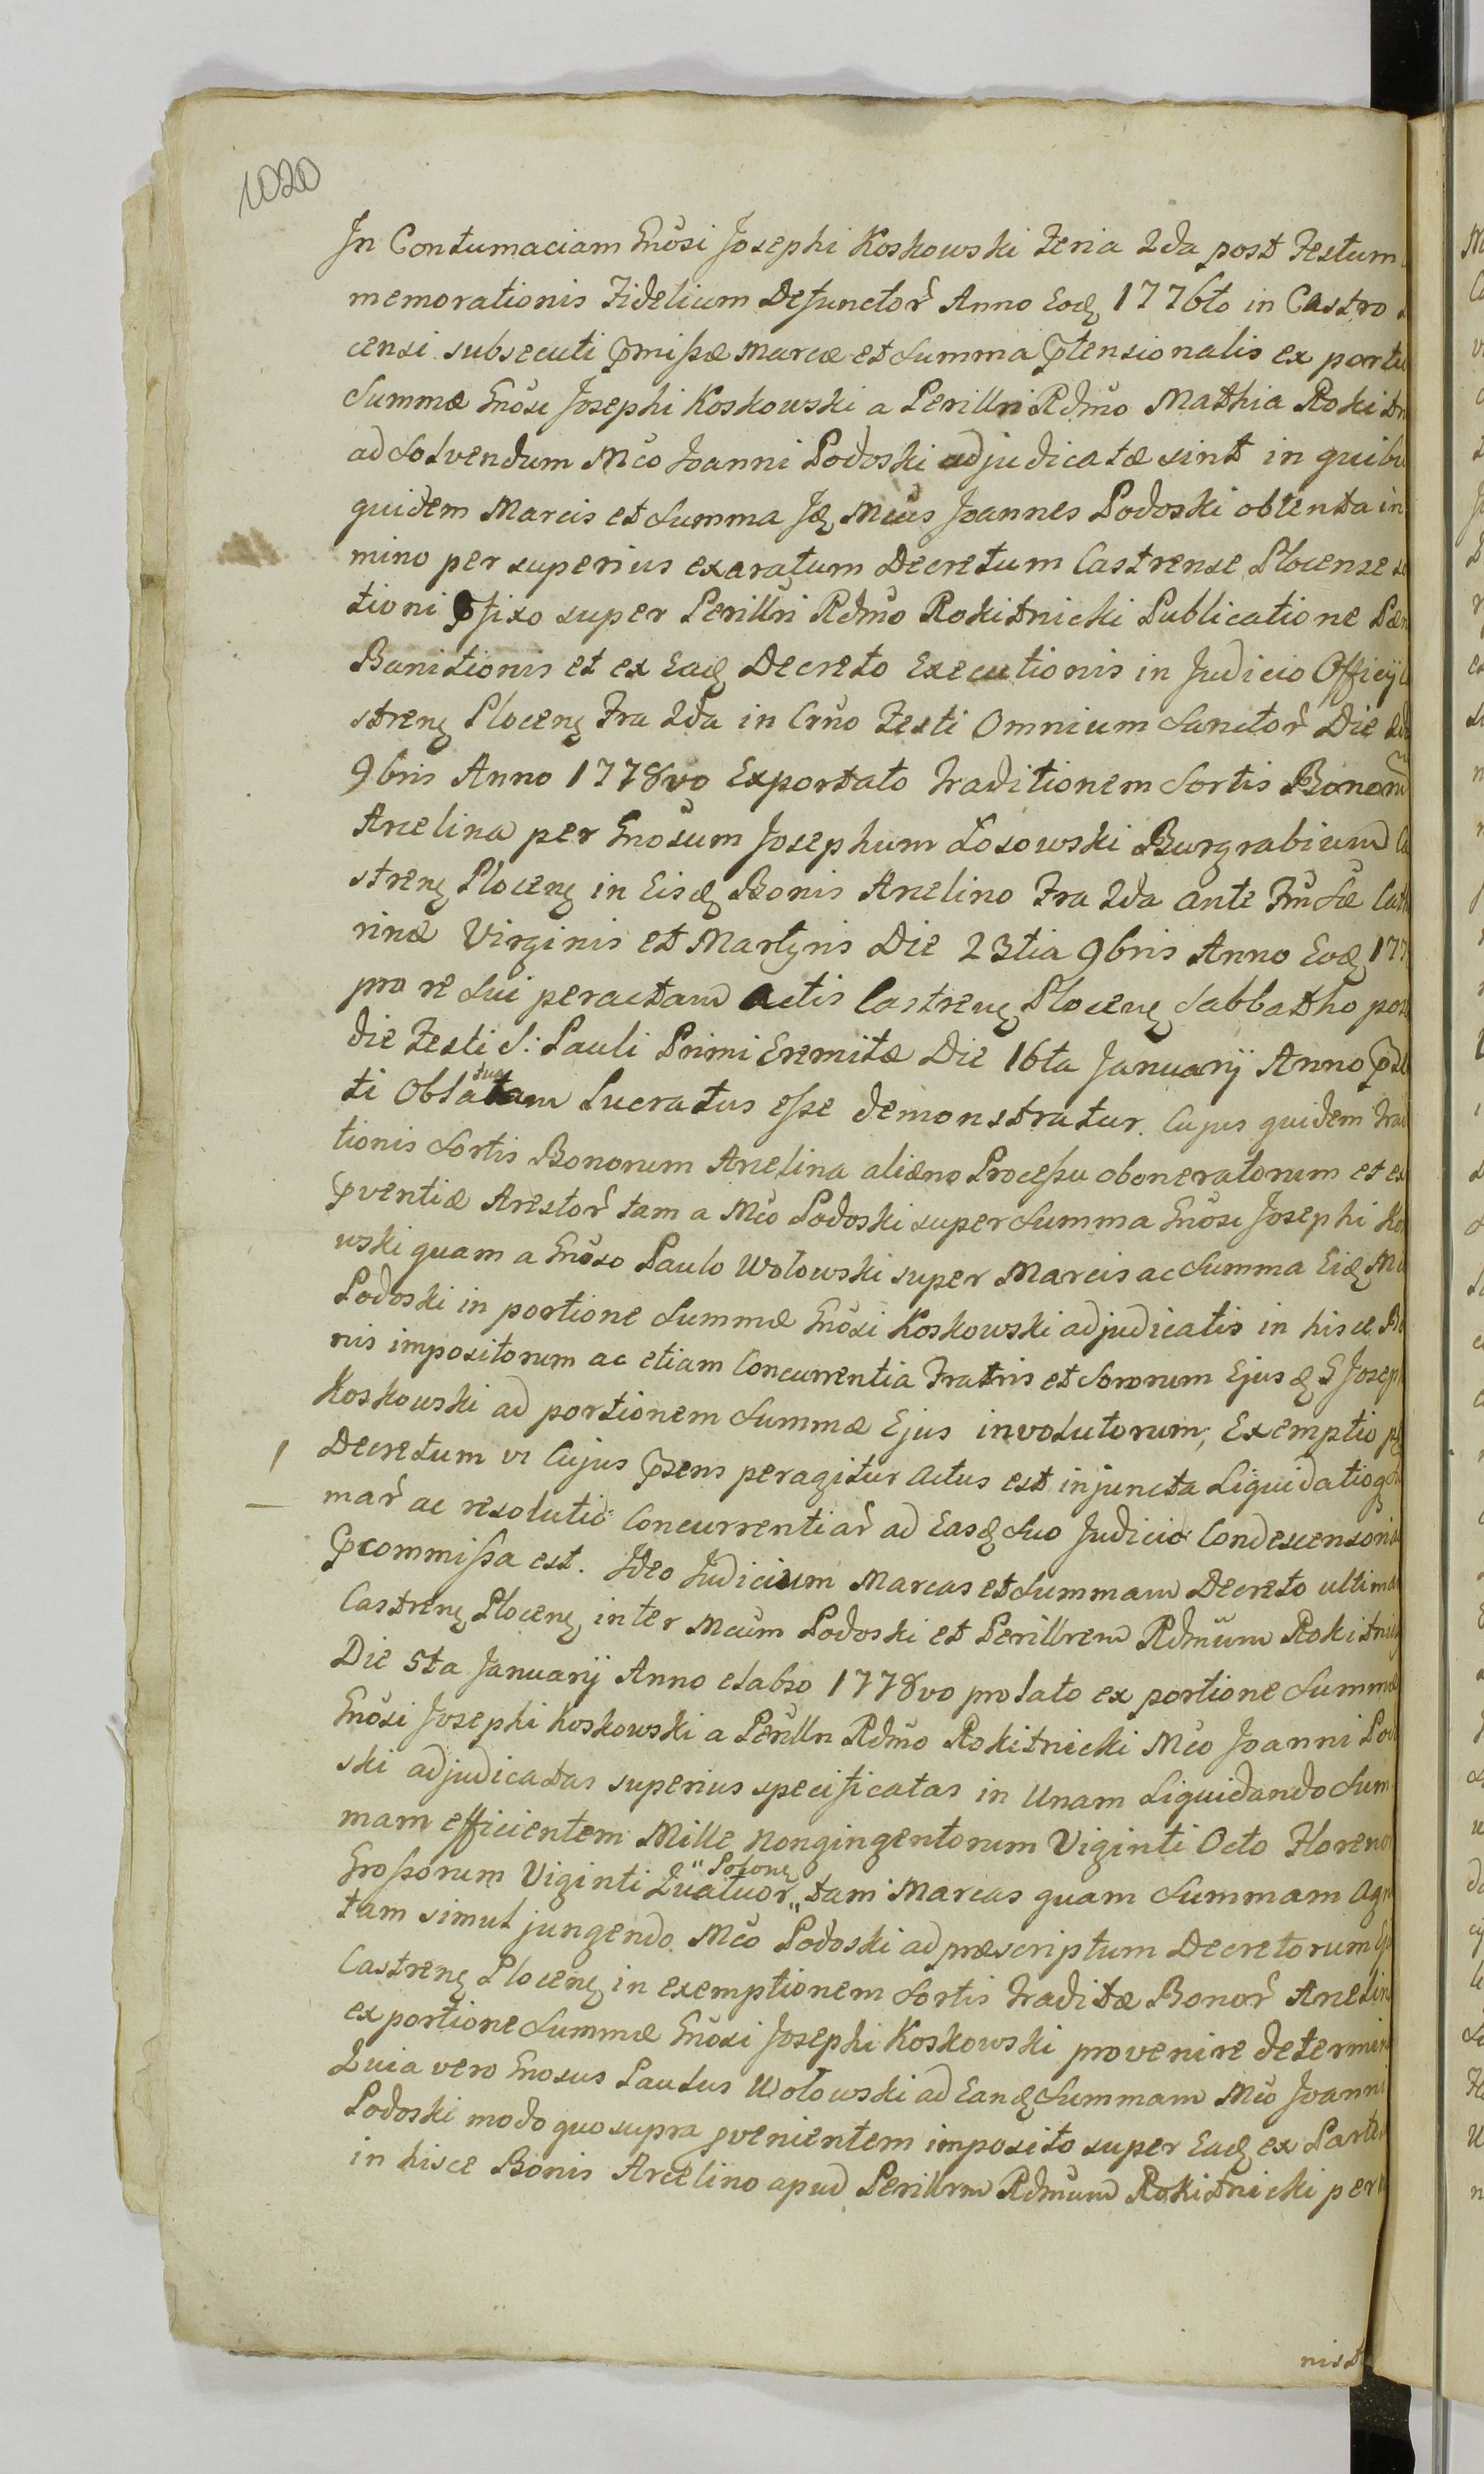 1020
In Contumaciam Gnŏsi Josephi Koskowski Feria 2da post Festum
memorationis Fidelium Defunctor̃ Anno Eodꝫ 1776to in Castro
censi subsecuti p̃mißæ marcæ et Summa p̃tensionalis ex portio
Summæ Gnŏsi Josephi Koskowski a Perillri Rdm̃o Mathia Rokitn
ad Solvendum Mc̃o Joanni Podoski adjudicatæ sint in quibu
quidem Marcis et Summa Jdꝫ Mcus Joannes Podoski obtenta in
mino per superius exaratum Decretum Castrense Plocense
tioni p̃fixo super Perillri Rdm̃o Rokitnicki Publicatione Pæn
Banitionis et ex Eodꝫ Decreto Executionis in Judicio Officij
strenꝫ Plocenꝫ Fra 2da in Crño Festi Omnium Sanctor̃ Die 2da
9bris Anno 1778vo Exportato Traditionem Sortis Bonorũ
Arcelina per Gnŏsum Josephum Łosowski Burgrabium Ca
strenꝫ Plocenꝫ in Eisdꝫ Bonis Arcelino Fra 2da ante Fm̃ S̃æ Cath
rinæ Virginis et Martyris Die 23tia 9bris Anno Eodꝫ 177
pro re Sui peractam Actis Castrenꝫ Plocenꝫ Sabbatho post
die Festi S: Pauli Primi Eremitæ Die 16ta Januarij Anno p̃se
ti Oblatam sua Lucratus eße demonstratur. Cujus quidem Tradi
tionis Sortis Bonorum Arcelina alieno Proceßu oboneratorum et ex
p̃ventiæ Arestor̃ tam a Mc̃o Podoski super Summa Gnŏsi Josephi Ko
wski quam a Gnŏso Paulo Wołowski super Marcis ac Summa Eidꝫ Mc̃o
Podoski in portione Summæ Gnŏsi Koskowski adjudicatis in hisce Bo
nis impositorum ac etiam Concurrentia Fratris et Sororum Ejusdꝫ G Joseph
Koskowski ad portionem Summæ Ejus involutorum, Exemptio p
Decretum vi Cujus p̃sens peragitur Actus est injuncta Liquidatioqꝫ
mar̃ ac resolutio Concurrentiar̃ ad Easdꝫ Suo Judicio Condescensoria
p̃commißa est. Ideo Judicium Marcas et Summam Decreto ultima
Castrenꝫ Plocenꝫ inter Mcũm Podoski et Perillrem Rdm̃um Rokitnic
Die 5ta Januarij Anno elabso 1778vo prolato ex portione Summæ
Gnŏsi Josephi Koskowski a Perillri Rdm̃o Rokitnicki Mc̃o Joanni Podo
ski adjudicatas superius specificatas in Unam Liquidando Sum
mam efficientem Mille Nongingentorum Viginti Octo Floreno
Großorum Viginti Quatuor „Polonꝫ„ tam Marcas quam Summam Agni
tam simul jungendo Mc̃o Podoski ad præscriptum Decretorum
Castrenꝫ Plocenꝫ in exemptionem Sortis Traditæ Bonor̃ Arcelin
ex portione Summæ Gnŏsi Josephi Koskowski provenire determina
Quia vero Gnosus Paulus Wołowski ad Eandꝫ Summam Mc̃o Joanni
Podoski modo quo supra p̃venientem imposito super Eadꝫ ex Parte
in hisce Bonis Arcelino apud Perillrm Rdm̃um Rokitnicki per
nis